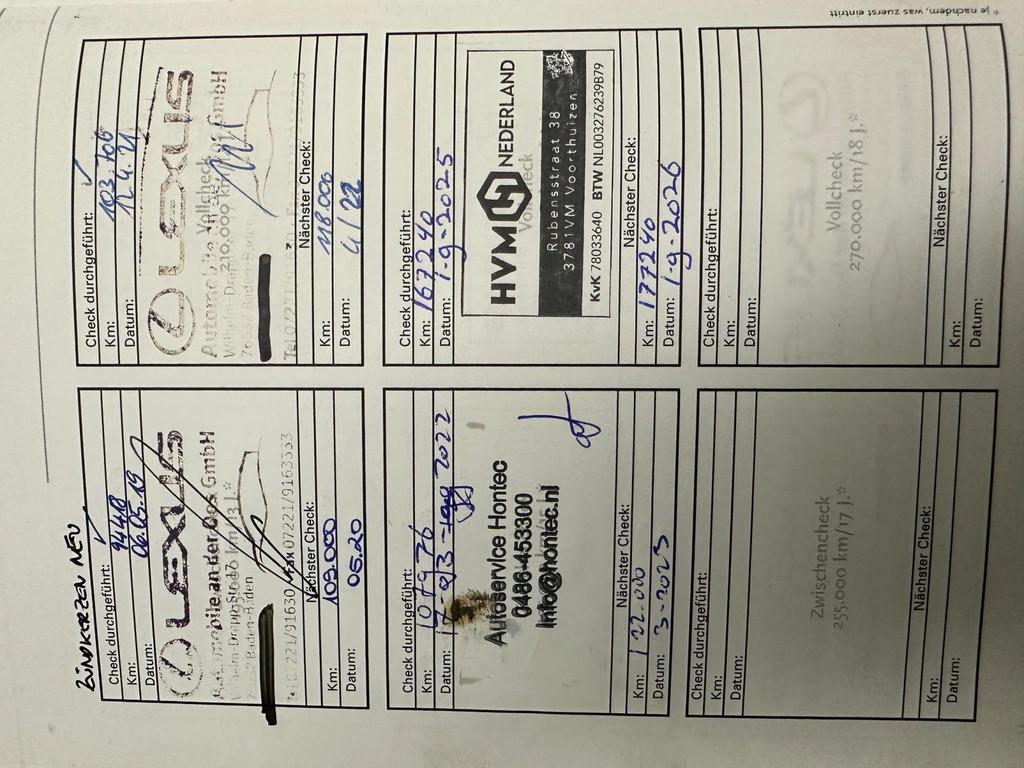 ZÜNDKERZEN NEU
Check durchgeführt: ✓
Km: 94418
Datum: 06.05.19
LEXUS
Automobile an der Oos GmbH
Wilhelm-Drapp-Str.
Baden-Baden
07221/9163333
Nächster Check:
Km: 109.000
Datum: 05.20
Check durchgeführt: ✓
Km: 103.
Datum: 12.4.21
LEXUS
Vollcheck
210.000 km/
GmbH
Wilhelm-Drapp-
Baden-Baden
Nächster Check:
Km: 118.000
Datum: 4/22
Check durchgeführt:
Km: 107976
Datum: 2022
Autoservice Hontec
0486-453300
Info@hontec.nl
Nächster Check:
Km: 122.000
Datum: 3-2023
Check durchgeführt:
Km: 167240
Datum: 1-9-2025
HVM NEDERLAND
Rubensstraat 38
3781VM Voorthuizen
KvK 78033640 BTW NL003276239B79
Nächster Check:
Km: 177240
Datum: 1-9-2026
Check durchgeführt:
Km:
Datum:
Zwischencheck
255.000 km/17 J.*
Nächster Check:
Km:
Datum:
Check durchgeführt:
Km:
Datum:
Vollcheck
270.000 km/18 J.*
Nächster Check:
Km:
Datum:
* je nachdem, was zuerst eintritt